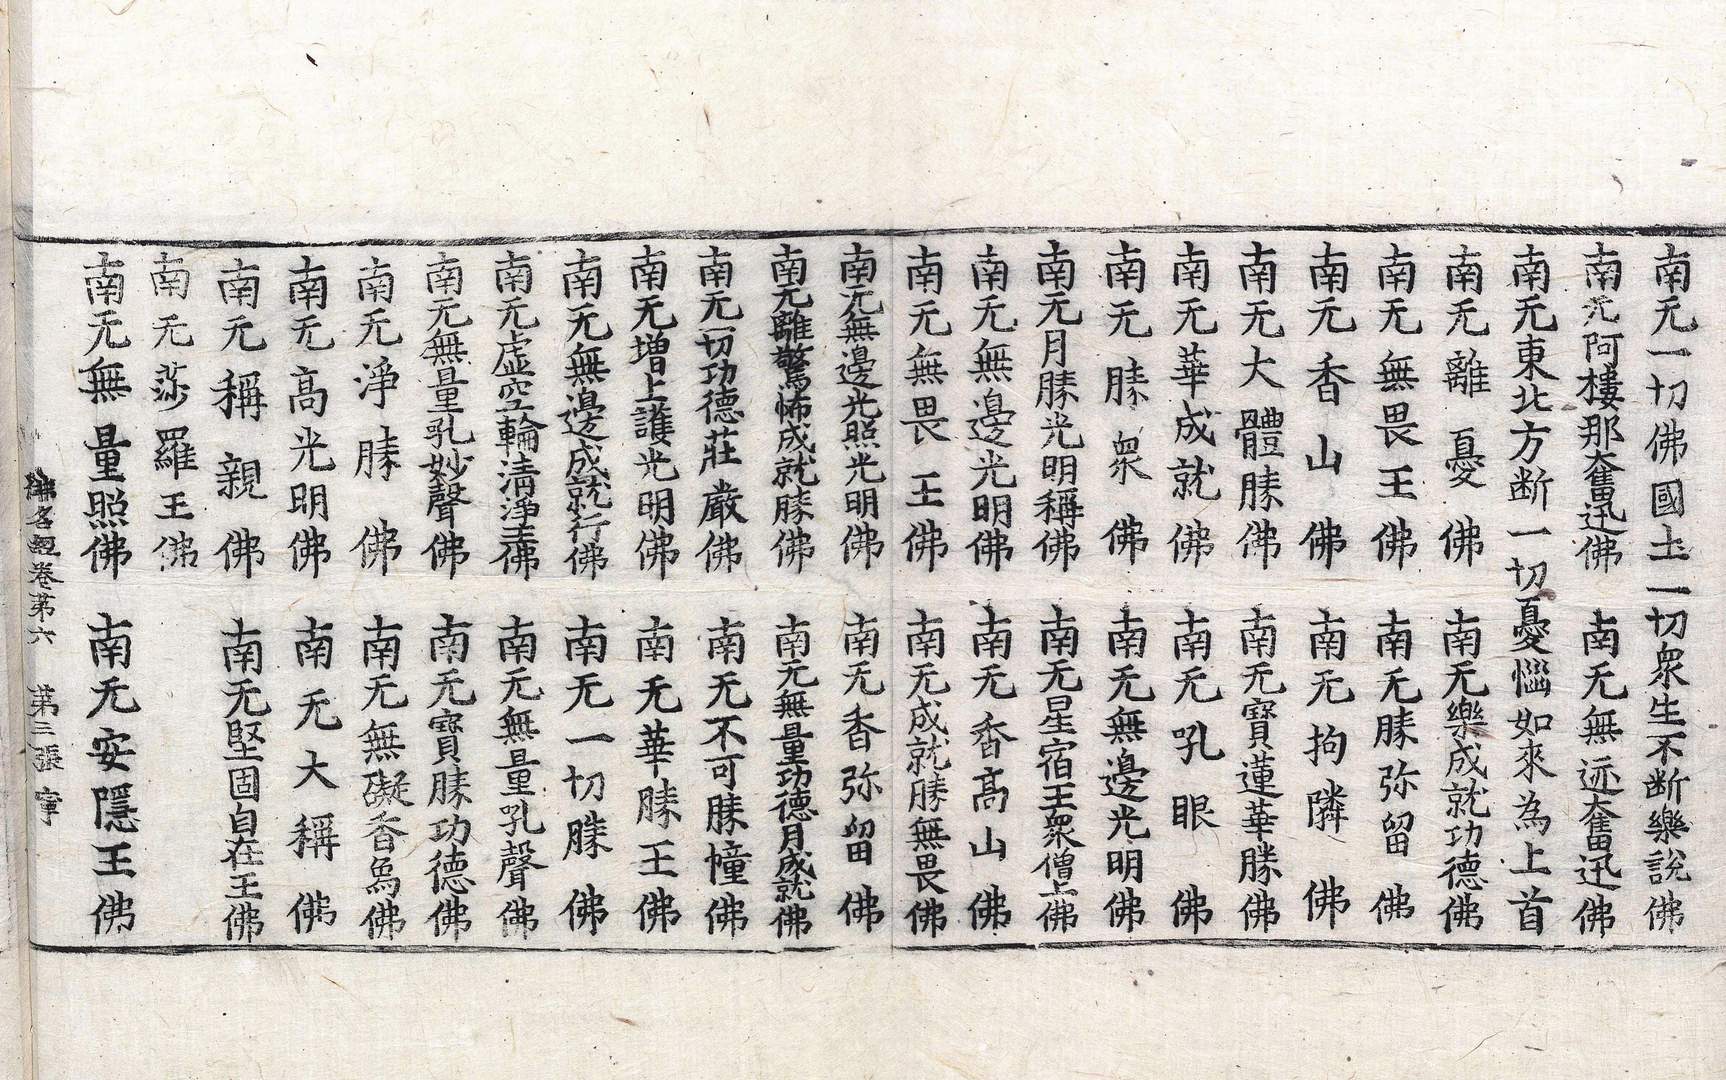 南无一切佛國土一切衆生不断樂說佛
南无阿樓那奮迅佛 南无無迹奮迅佛
南无東北方断一切憂惱如來為上首
南无離憂佛 南无樂成就功德佛
南无無畏王佛 南无勝弥留佛
南无香山佛 南无拘隣佛
南无大體勝佛 南无寶蓮華勝佛
南无華成就佛 南无吼眼佛
南无勝衆佛 南无無邊光明佛
南无月勝光明稱佛 南无星宿王衆僧上佛
南无無邊光明佛 南无香高山佛
南无無畏王佛 南无成就勝無畏佛
南无無邊光照光明佛 南无香弥留佛
南无離驚怖成就勝佛 南无無量功德月成就佛
南无一切功德莊嚴佛 南无不可勝幢佛
南无增上護光明佛 南无華勝王佛
南无無邊成就行佛 南无一切勝佛
南无虛空輪清淨王佛 南无無量吼聲佛
南无無量吼妙聲佛 南无寶勝功德佛
南无淨勝佛 南无無礙香爲佛
南无高光明佛 南无大稱佛
南无稱親佛 南无堅固自在王佛
南无莎羅王佛
南无無量照佛 南无安隱王佛
佛名經卷第六 第三張 寧